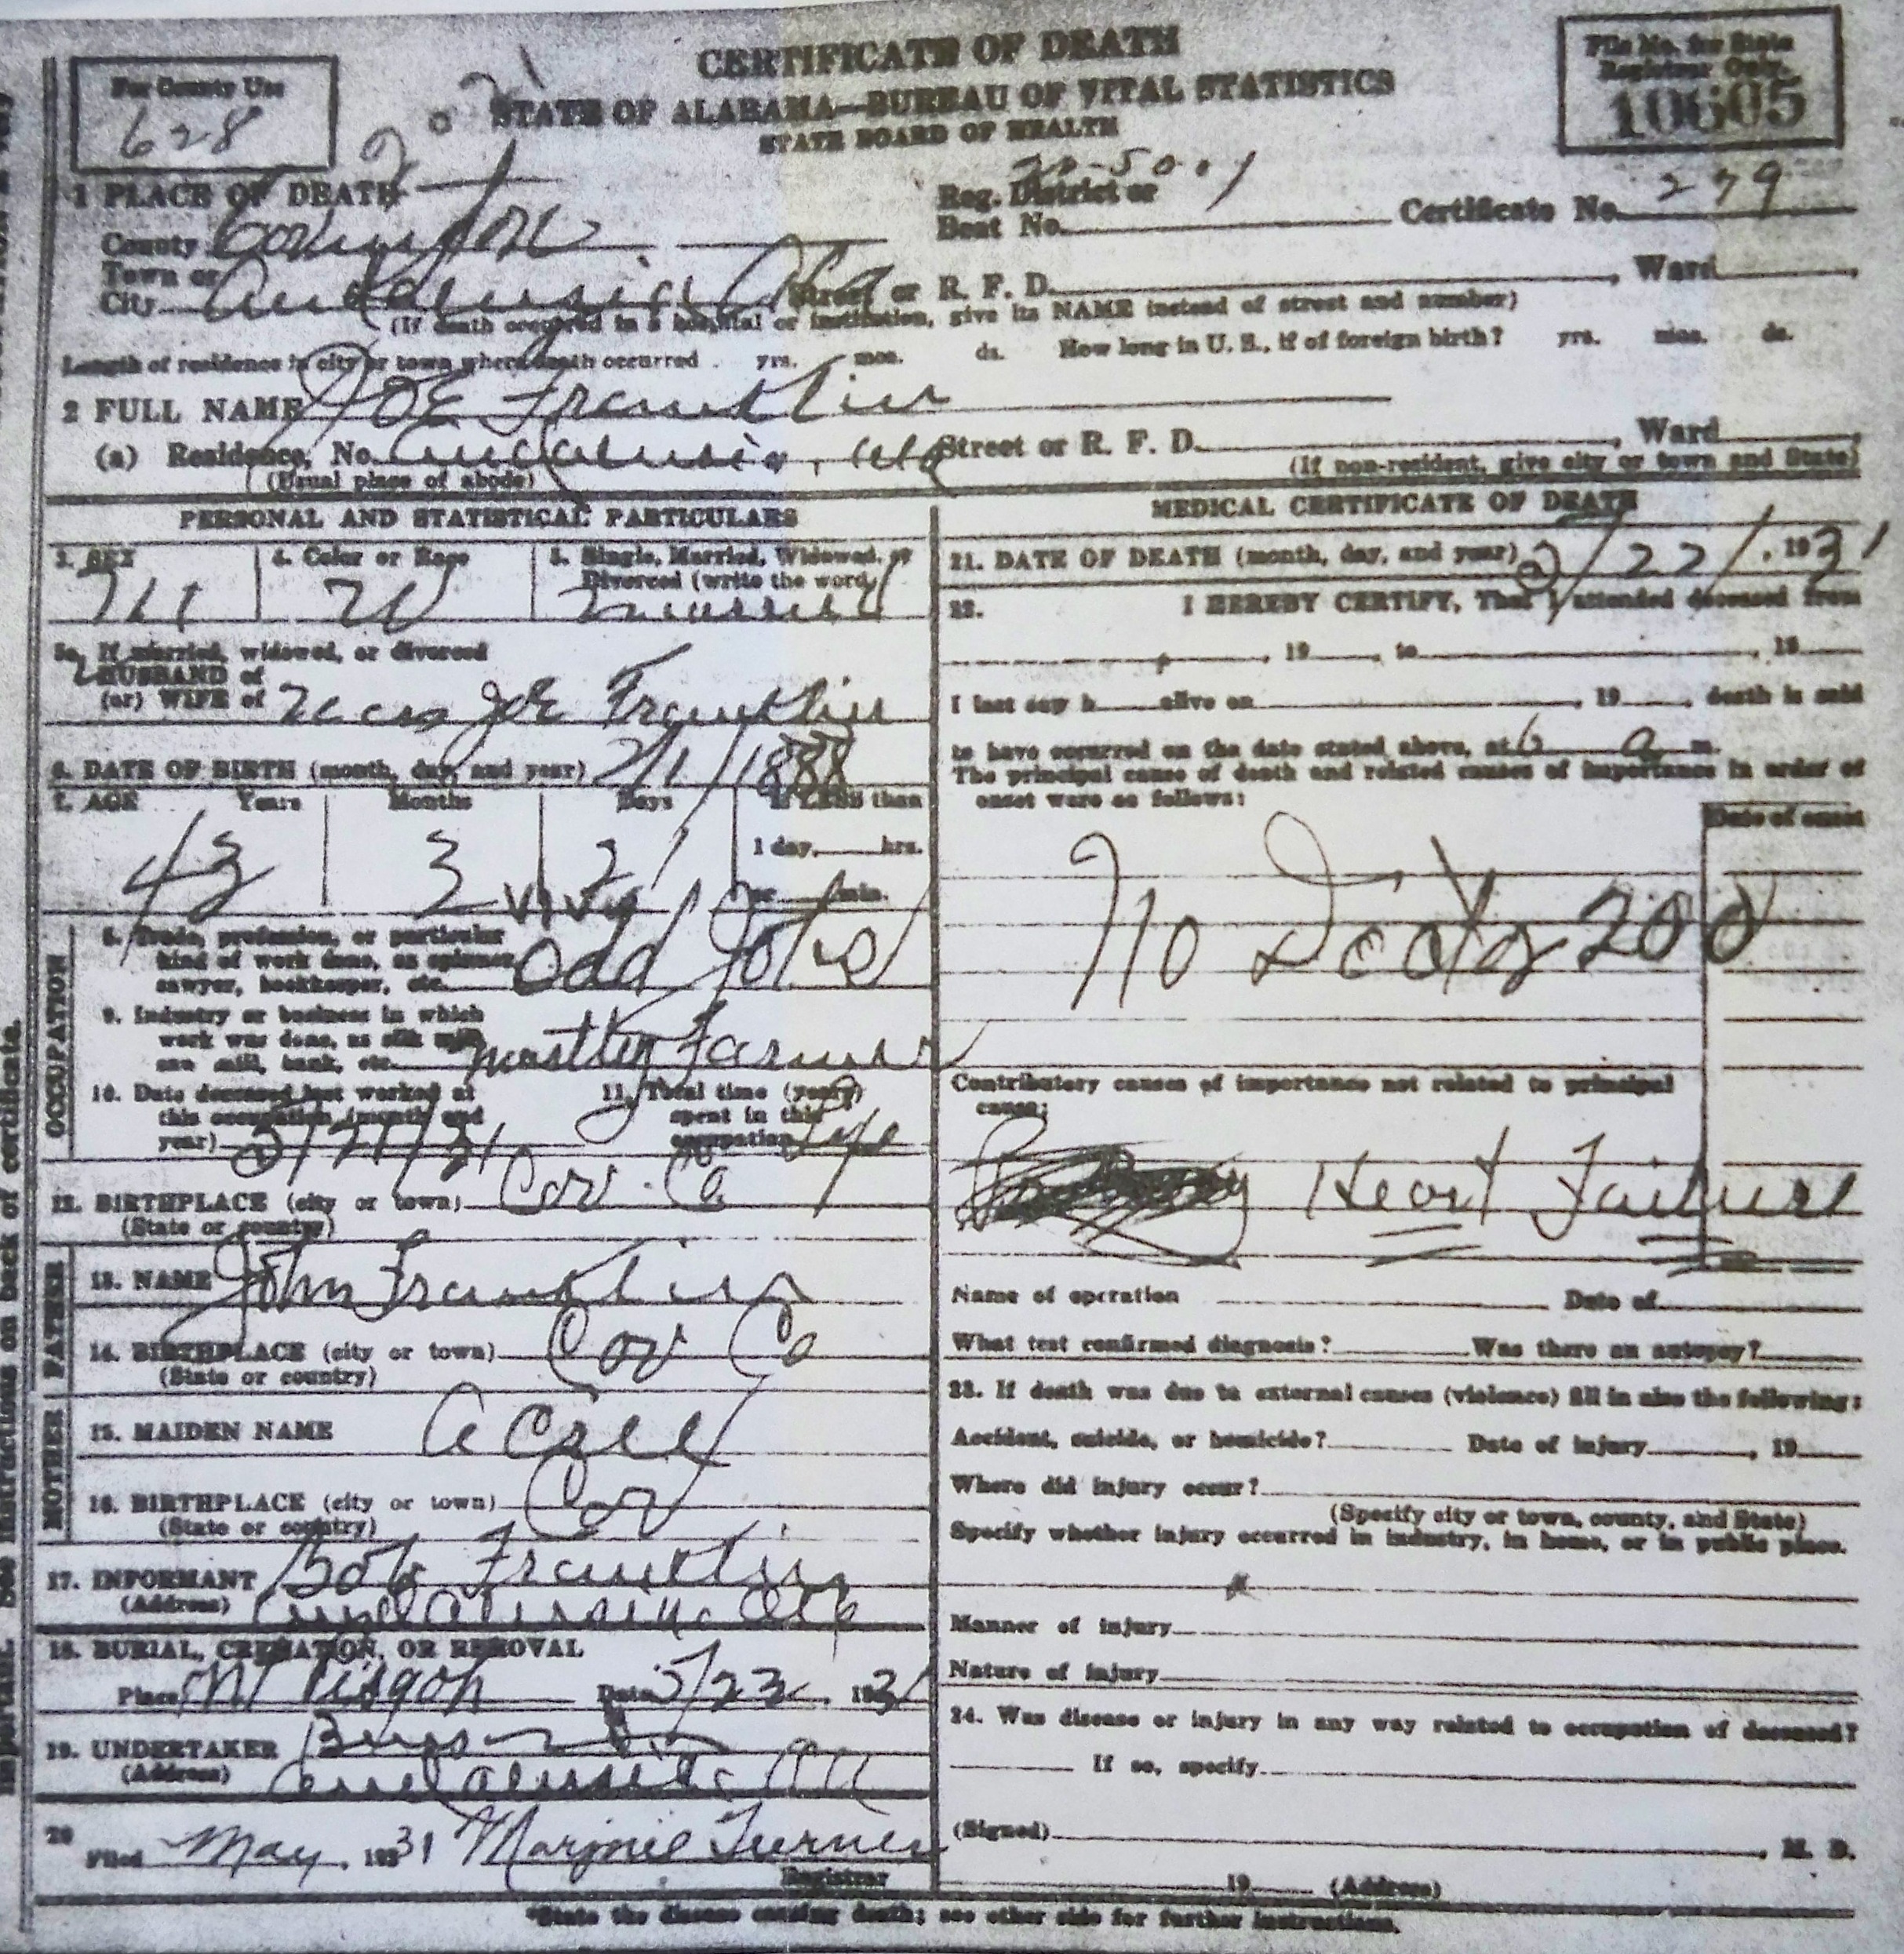 CERTIFICATE OF DEATH
STATE OF ALABAMA—BUREAU OF VITAL STATISTICS
STATE BOARD OF HEALTH
For County Use
628
File No. for State
Registrar Only.
10605
1 PLACE OF DEATH
County Covington
Reg. District or
Beat No. Certificate No. 279
Town or
City Andalusia, Ala Street or R. F. D. , Ward ,
(If death occurred in a hospital or institution, give its NAME instead of street and number)
Length of residence in city or town where death occurred . yrs. mos. ds. How long in U. S., if of foreign birth? yrs. mos. ds.
2 FULL NAME JOE Franklin
(a) Residence, No. Andalusia, Ala Street or R. F. D. , Ward ,
(Usual place of abode) (If non-resident, give city or town and State)
PERSONAL AND STATISTICAL PARTICULARS
3. SEX 4. Color or Race 5. Single, Married, Widowed, or
Divorced (write the word)
M W married
5a. If married, widowed, or divorced
HUSBAND of
(or) WIFE of Joe Franklin
6. DATE OF BIRTH (month, day, and year) 2/1/1888
7. AGE Years Months Days If LESS than
43 3 21 1 day, hrs.
or min.
OCCUPATION
8. Trade, profession, or particular
kind of work done, as spinner,
sawyer, bookkeeper, etc. Odd Jobs
9. Industry or business in which
work was done, as silk mill,
saw mill, bank, etc. mostley Farmer
10. Date deceased last worked at
this occupation (month and
year) 5/21/31
11. Total time (years)
spent in this
occupation
12. BIRTHPLACE (city or town) Cov. Co
(State or country)
FATHER
13. NAME John Franklin
14. BIRTHPLACE (city or town) Cov Co
(State or country)
MOTHER
15. MAIDEN NAME
16. BIRTHPLACE (city or town) Cov
(State or country)
17. INFORMANT Bob Franklin
(Address) Andalusia Ala
18. BURIAL, CREMATION, OR REMOVAL
Place Mt Pisgah Date 5/23, 1931
19. UNDERTAKER
(Address) Andalusia Ala
20
Filed May, 1931 Marjorie Turner
Registrar
MEDICAL CERTIFICATE OF DEATH
21. DATE OF DEATH (month, day, and year) 5/22/, 1931
22. I HEREBY CERTIFY, That I attended deceased from
, 19 , to , 19
I last saw h alive on , 19 , death is said
to have occurred on the date stated above, at 6 a m.
The principal cause of death and related causes of importance in order of
onset were as follows:
Date of onset
No 200
Contributory causes of importance not related to principal
cause:
Heart Failure
Name of operation Date of
What test confirmed diagnosis? Was there an autopsy?
23. If death was due to external causes (violence) fill in also the following:
Accident, suicide, or homicide? Date of injury , 19
Where did injury occur?
(Specify city or town, county, and State)
Specify whether injury occurred in industry, in home, or in public place.
Manner of injury
Nature of injury
24. Was disease or injury in any way related to occupation of deceased?
If so, specify
(Signed) , M. D.
19 (Address)
*State the disease causing death; see other side for further instructions.
See instructions on back of certificate.